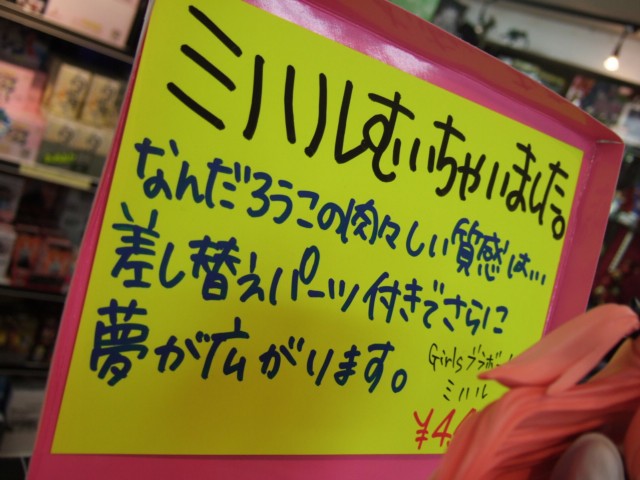 ミハルむいちゃいました。
なんだろうこの肉々しい質感は…
差し替えパーツ付きでさらに
夢が広がります。
Girlsブラボー
ミハル
¥4,